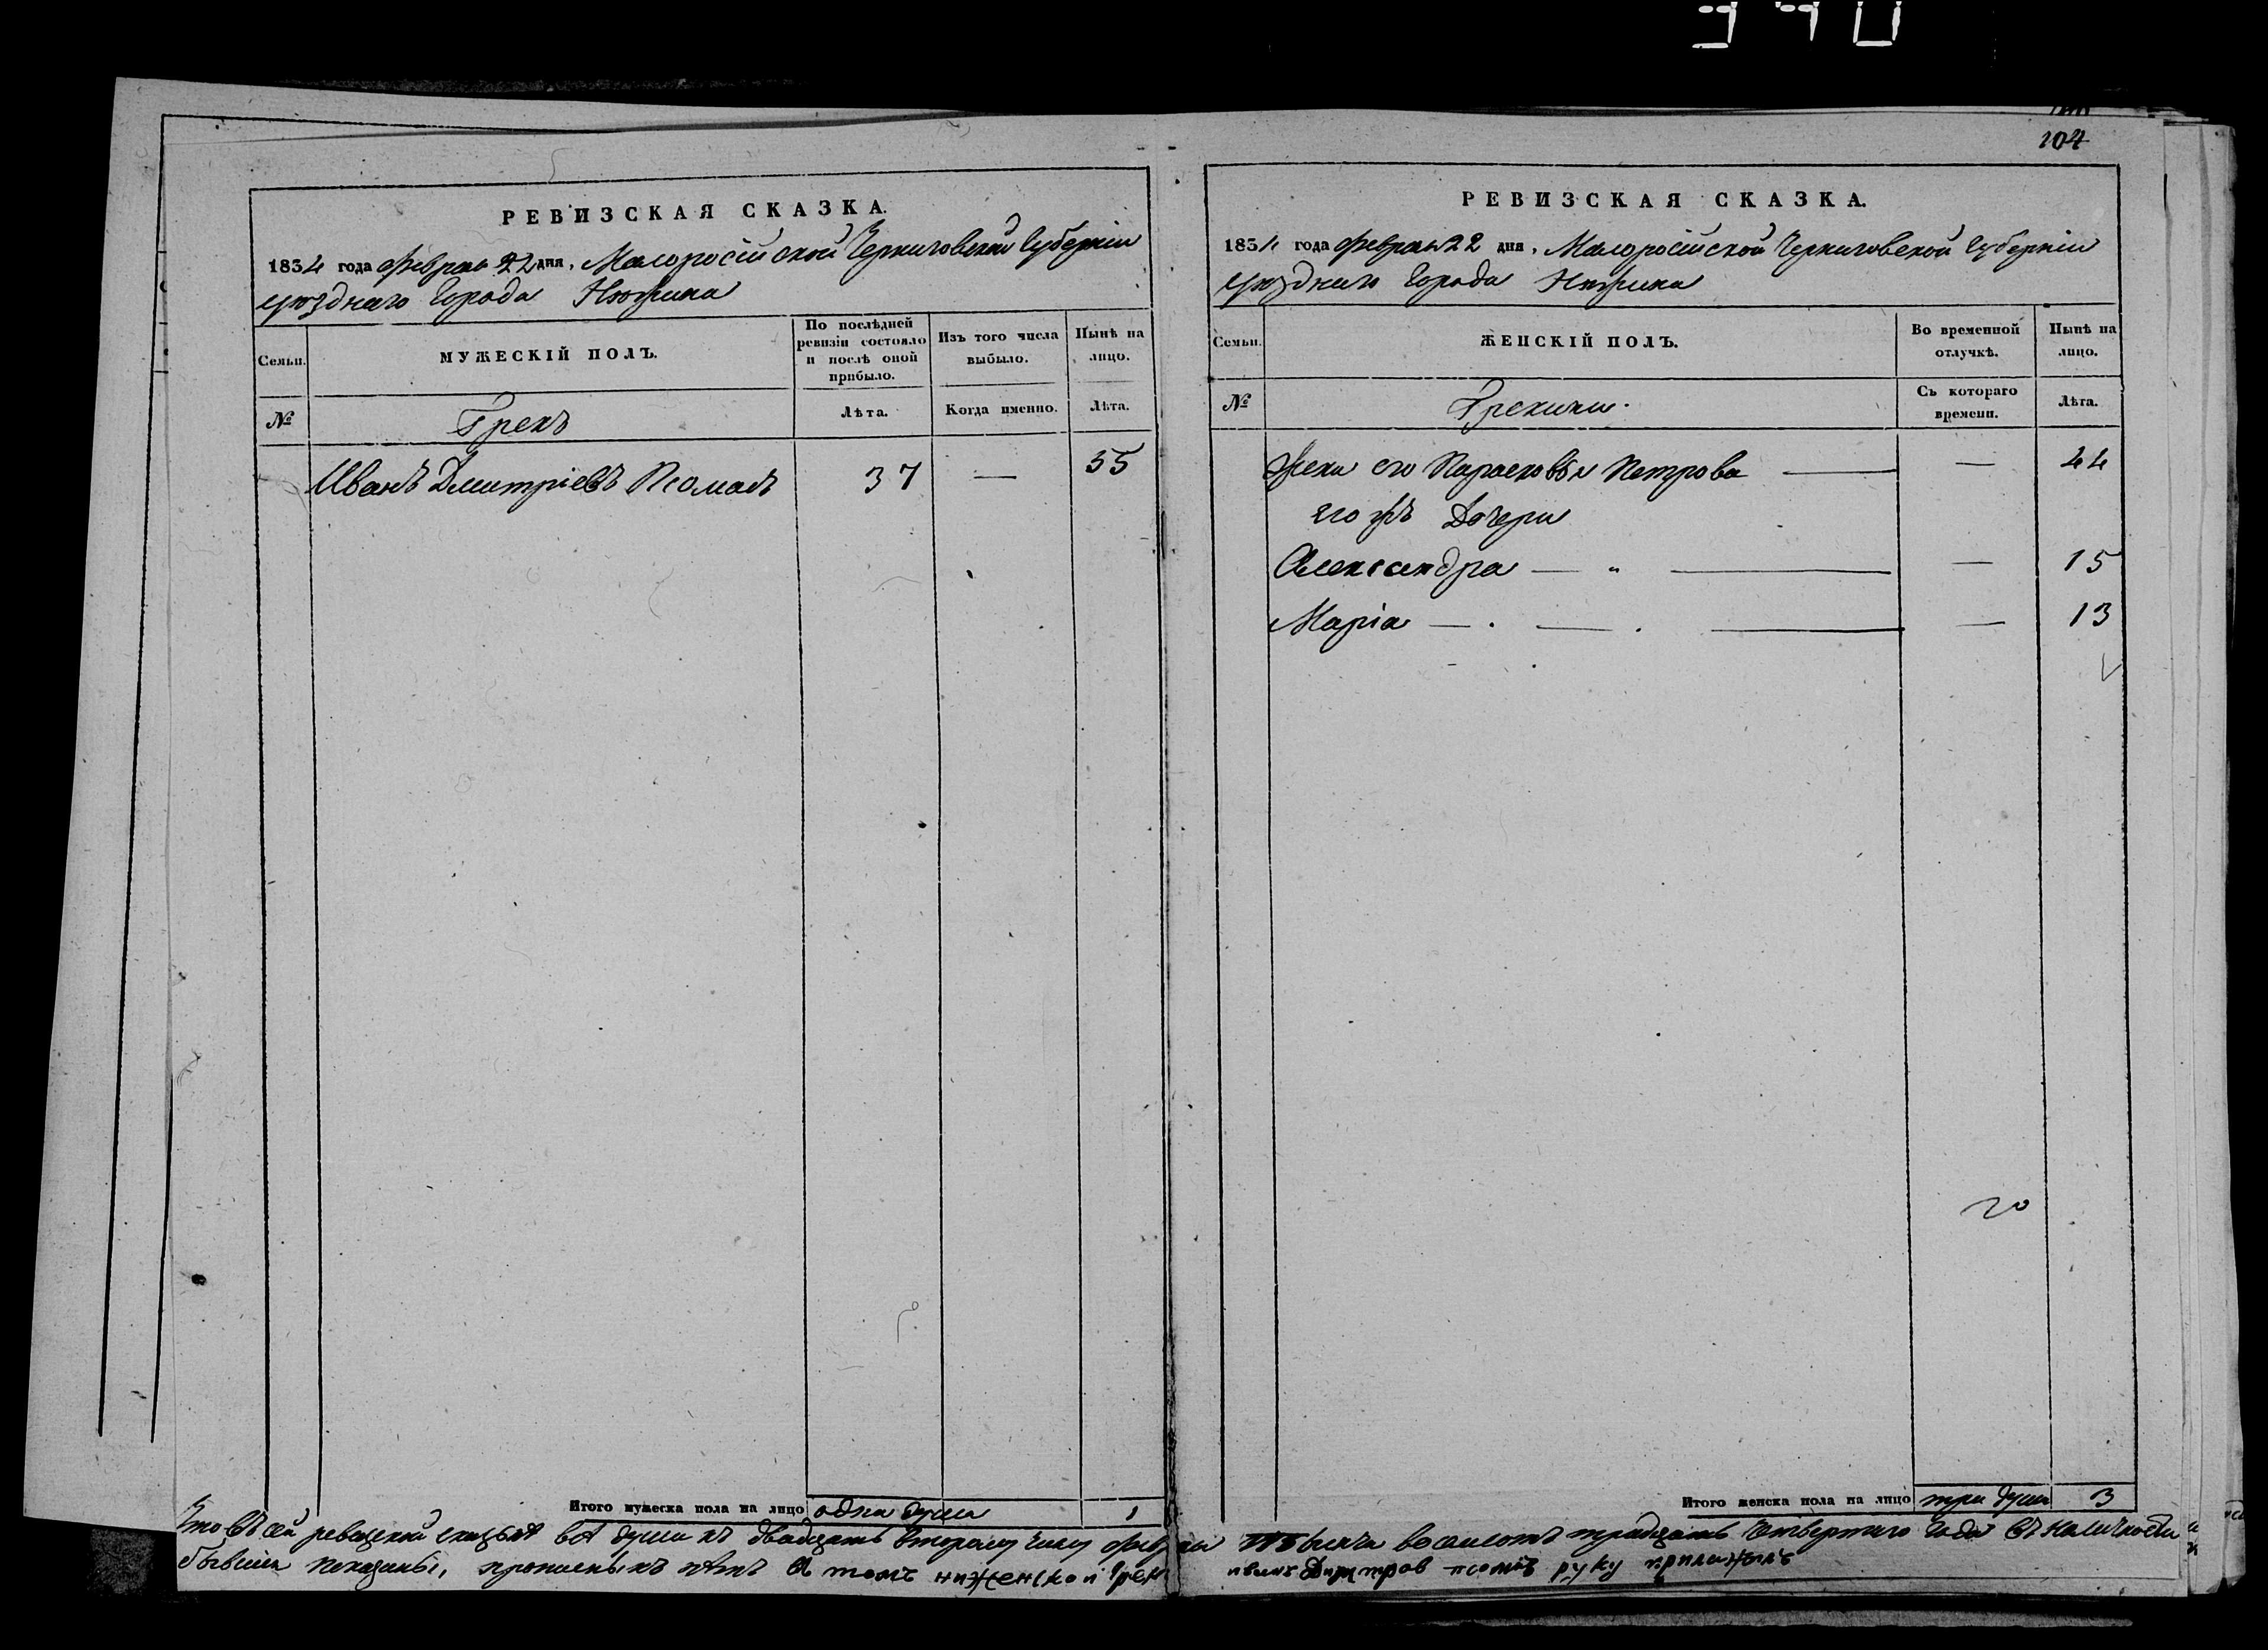 104
РЕВИЗСКАЯ СКАЗКА.
1834 года Февраля 22 дня, Малоросійской Черниговской Губерніи
уѣзднаго Города Нѣжина
Семьи.
МУЖЕСКІЙ ПОЛЪ.
По послѣдней ревизіи состояло и послѣ оной прибыло.
Изъ того числа выбыло.
Нынѣ на лицо.
№
Грекъ
Лѣта.
Когда именно.
Лѣта.
Иванъ Дмитріевъ Псомасъ 37 — 55
Итого мужеска пола на лицо одна душа 1
РЕВИЗСКАЯ СКАЗКА.
1834 года Февраля 22 дня, Малоросійской Черниговской Губерніи
уѣзднаго Города Нѣжина
Семьи.
ЖЕНСКІЙ ПОЛЪ.
Во временной отлучкѣ.
Нынѣ на лицо.
№
Грекини.
Съ котораго времени.
Лѣта.
Жена его Парасковья Петрова — — 44
его жъ Дочери
Александра — " — — 15
Марія — . — . — — 13
20
Итого женска пола на лицо три души 3
Что въ сей ревизской сказкѣ всѣ души къ двадцать второму числу Февраля тысяча восемсотъ тридцать Четвертаго Года въ наличности
бывшія показаны, прописныхъ нѣтъ въ томъ ниженской грекъ иванъ Димтров псомасъ руку приложылъ